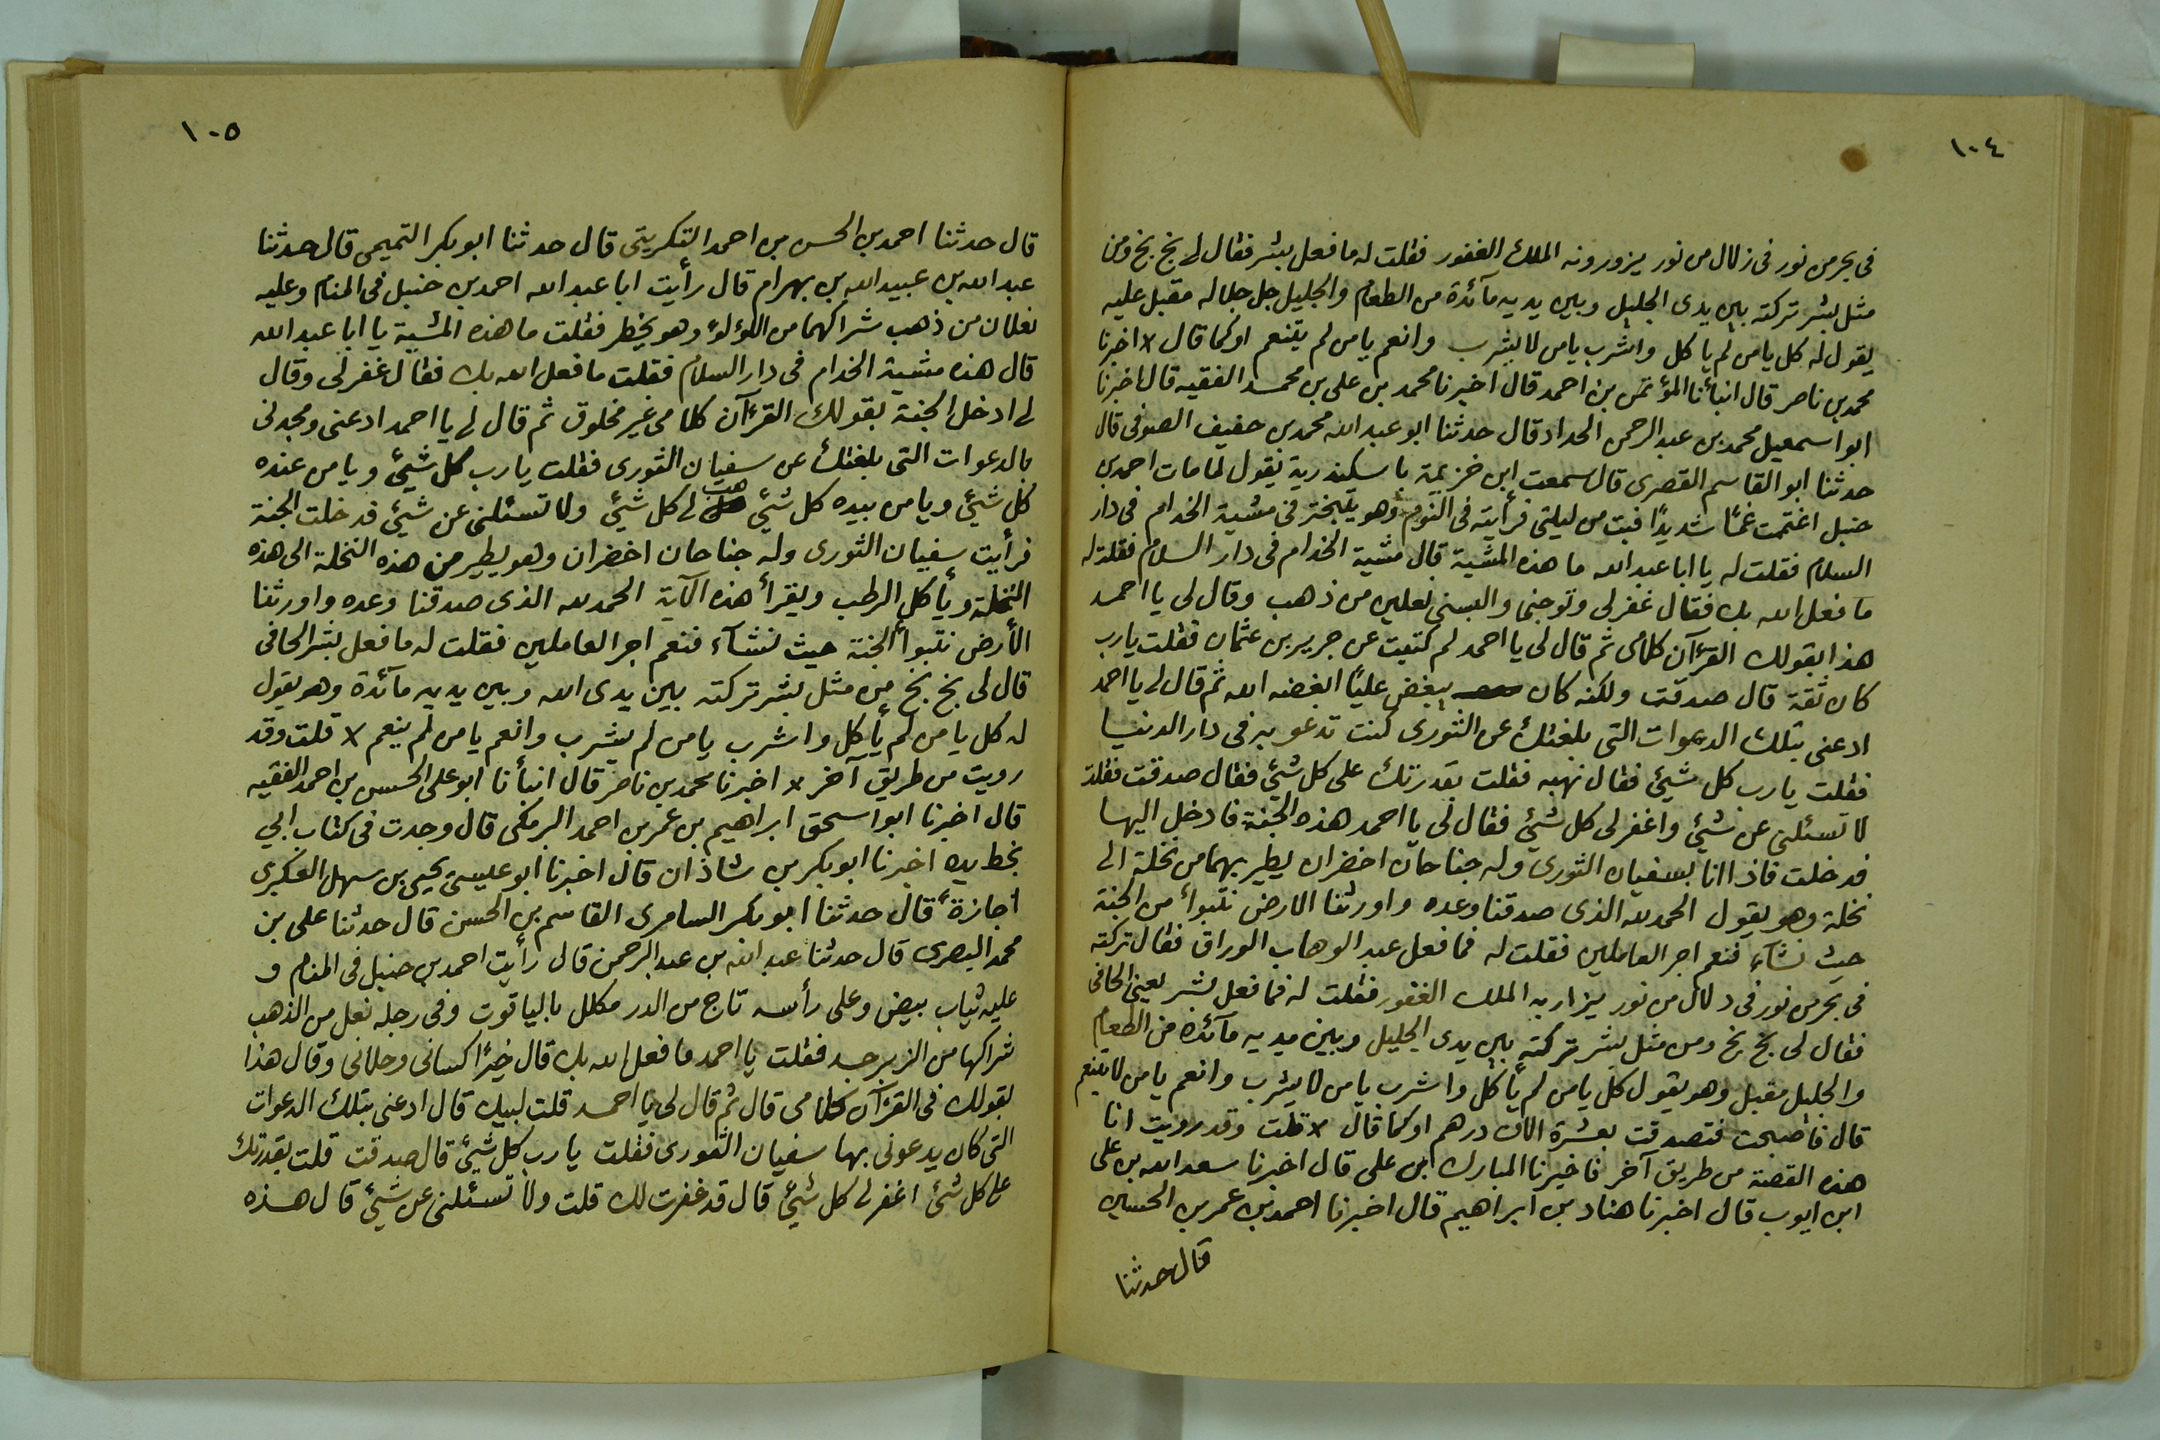 ١٠٤
في بحر من نور في زلال من نور يزورونه الملك الغفور فقلت له ما فعل بشر فقال لي بخ بخ ومن
مثل بشر تركته بين يدى الجليل وبين يديه مآئدة من الطعام والجليل جل جلاله مقبل عليه
يقول له كل يا من لم ياكل واشرب يا من لا يشرب وانعم يا من لم يتنعم اوكما قال × اخبرنا
محمد بن ناصر قال انبأنا المؤتمن بن احمد قال اخبرنا محمد بن على بن محمد الفقيه قال اخبرنا
ابو اسمعيل محمد بن عبد الرحمن الحداد قال حدثنا ابو عبد الله محمد بن حفيف الصوفى قال
حدثنا ابو القاسم القصرى قال سمعت ابن خزيمة باسكندرية يقول لما مات احمد بن
حنبل اغتممت غمًا شديدًا فبت من ليلتى فرأيته في النوم وهو يتبختر في مشية الخدام في دار
السلام فقلت له يا ابا عبد الله ما هذه المشية قال مشية الخدام في دار السلام فقلت له
ما فعل الله بك فقال غفر لي وتوجنى والبسنى نعلين من ذهب وقال لى يا احمد
هذا بقولك القرآن كلامى ثم قال لى يا احمد لم كتبت عن جرير بن عثمان فقلت يا رب
كان ثقة قال صدقت ولكنه كان يبغض عليًا ابغضه الله ثم قال لى يا احمد
ادعنى بتلك الدعوات التى بلغتك عن الثورى كنت تدعو بهن في دار الدنيا
فقلت يا رب كل شيئ فقال نهيه فقلت بقدرتك على كل شيئ فقال صدقت فقلت
لا تسئلنى عن شيئ واغفر لى كل شيئ فقال لى يا احمد هذه الجنة فادخل اليها
فدخلت فاذا انا بسفيان الثورى وله جناحان اخضران يطير بهما من نخلة الى
نخلة وهو يقول الحمد لله الذى صدقنا وعده واورثنا الارض نتبوأ من الجنة
حيث نشآء فنعم اجر العاملين فقلت له فما فعل عبد الوهاب الوراق فقال تركته
في بحر من نور في دلال من نور يزار به الملك الغفور فقلت له فما فعل بشر يعنى الحافى
فقال لى بخ بخ ومن مثل بشر تركته بين يدى الجليل وبين يديه مآئدة من الطعام
والجليل مقبل وهو يقول كل يا من لم يأكل واشرب يا من لا يشرب وانعم يا من لا يتنعم
قال فاصبحت فتصدقت بعشرة الاف درهم اوكما قال × قلت وقد رويت انا
هذه القصة من طريق آخر فاخبرنا المبارك ابن على قال اخبرنا سعد الله بن على
ابن ايوب قال اخبرنا هناد بن ابراهيم قال اخبرنا احمد بن عمر بن الحسين
قال حدثنا
١٠٥
قال حدثنا احمد بن الحسن بن احمد التكريتى قال حدثنا ابو بكر التميمى قال حدثنا
عبد الله بن عبيد الله بن بهرام قال رأيت ابا عبد الله احمد بن حنبل في المنام وعليه
نعلان من ذهب شراكهما من اللؤلؤ وهو يخطر فقلت ما هذه المشية يا ابا عبد الله
قال هذه مشية الخدام في دار السلام فقلت ما فعل الله بك فقال غفر لى وقال
لى ادخل الجنة بقولك القرءآن كلامى غير مخلوق ثم قال لى يا احمد ادعنى ومجدنى
بالدعوات التى بلغتك عن سفيان الثورى فقلت يا رب كل شيئ ويا من عنده
كل شيئ ويا من بيده كل شيئ هب لى كل شيئ ولا تسئلنى عن شيئ فدخلت الجنة
فرأيت سفيان الثورى وله جناحان اخضران وهو يطير من هذه النخلة الى هذه
النخلة ويأكل الرطب ويقرأ هذه الآية الحمد لله الذى صدقنا وعده واورثنا
الأرض نتبوأ الجنة حيث نشآء فنعم اجر العاملين فقلت له ما فعل بشر الحافى
قال لى بخ بخ من مثل بشر تركته بين يدى الله وبين يديه مآئدة وهو يقول
له كل يا من لم يأكل واشرب يا من لم يشرب وانعم يا من لم ينعم × قلت وقد
رويت من طريق آخر × اخبرنا محمد بن ناصر قال انبأنا ابو على الحسن بن احمد الفقيه
قال اخبرنا ابو اسحق ابراهيم بن عمر بن احمد البرمكى قال وجدت في كتاب ابي
بخط يده اخبرنا ابو بكر بن شاذان قال اخبرنا ابو عيسى يحيى بن سهل العكبرى
اجازةً قال حدثنا ابو بكر السامرى القاسم بن الحسن قال حدثنا على بن
محمد البصرى قال حدثنا عبد الله بن عبد الرحمن قال رأيت احمد بن حنبل في المنام و
عليه ثياب بيض وعلى رأسه تاج من الدر مكلل بالياقوت وفى رجله نعل من الذهب
شراكها من الزبرجد فقلت يا احمد ما فعل الله بك قال خيرًا كسانى وحلانى وقال هذا
بقولك في القرءآن كلامى قال ثم قال لى يا احمد قلت لبيك قال ادعنى بتلك الدعوات
التى كان يدعونى بها سفيان الثورى فقلت يا رب كل شيئ قال صدقت قلت بقدرتك
على كل شيئ اغفر لى كل شيئ قال قد غفرت لك قلت ولا تسئلنى عن شيئ قال هذه